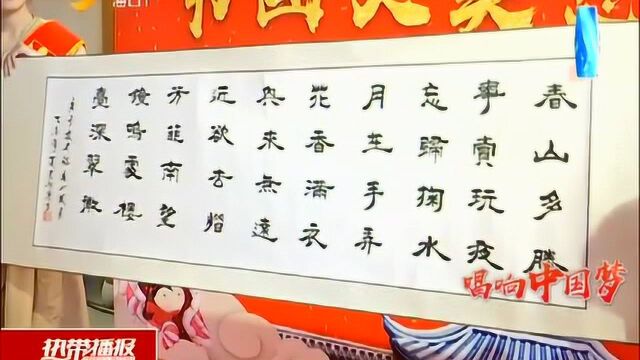 春山多勝
事賞玩夜
忘歸掬水
月在手弄
花香滿衣
興來無遠
近欲去惜
芳菲南望
鳴處樓
臺深翠微
唱响中国梦
热带播报